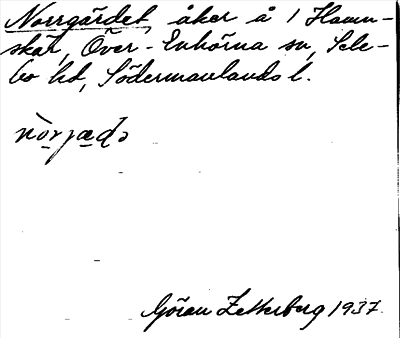 Norrgärdet, åker å 1 Hamn-
skär, Över-Enhörna sn, Sele-
bo hd, Södermanlands l.
Göran Zetterberg 1937.